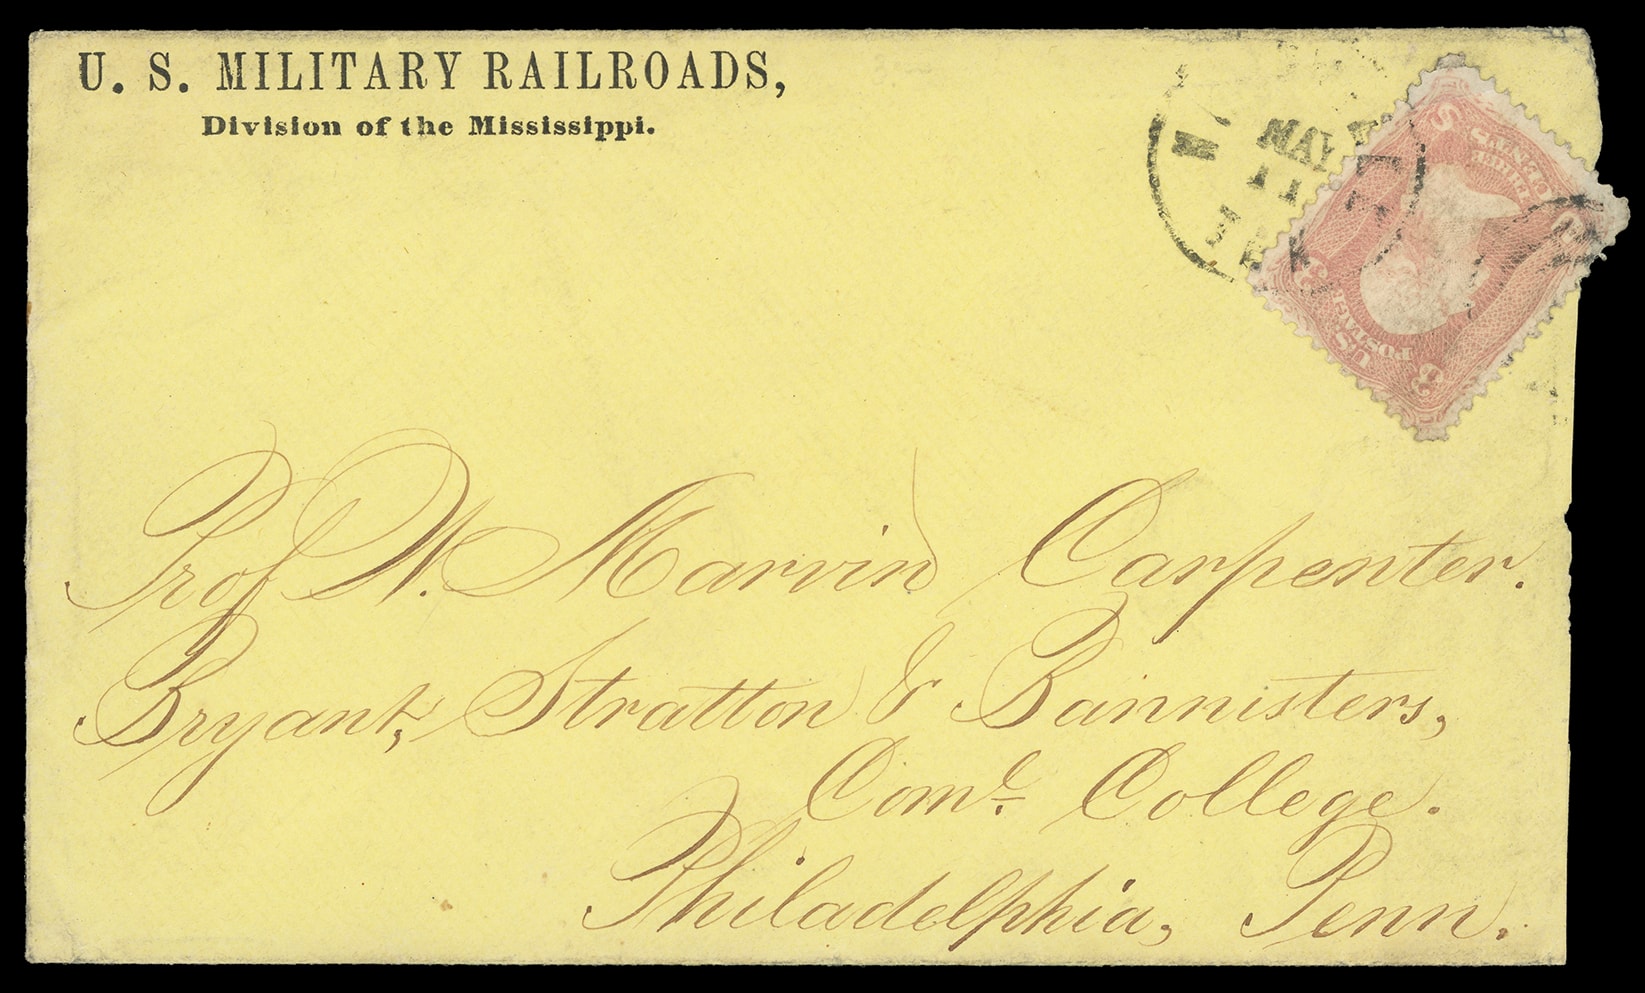 U. S. MILITARY RAILROADS,
Division of the Mississippi.
MAY
11
TEN
THREE CENTS
U.S. POSTAGE
3
3
Prof W. Marvin Carpenter.
Bryant, Stratton & Bannisters,
Coml. College.
Philadelphia, Penn.